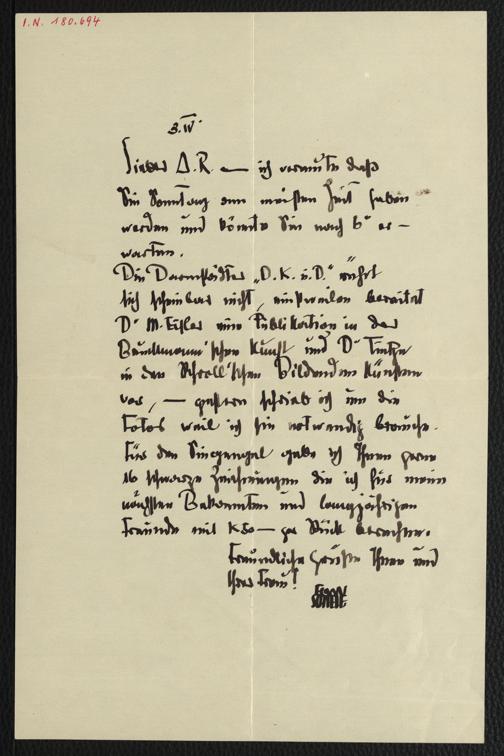 I.N. 180.694
3.IV.
Lieber A.R. — ich vermute daß
Sie Sonntag am meisten Zeit haben
werden und könnte Sie nach 6h er-
warten.
Die Darmstädter „D.K.u.D." rührt
sich scheinbar nicht, einstweilen bereitet
Dr M. Eisler eine Publikation in der
Bruckmann'schen Kunst, und Dr Tietze
in den Schroll'schen Bildenden Künsten
vor, — gestern schrieb ich um die
Fotos weil ich sie notwendig brauche.
Für den gebe ich Ihnen gerne
16 schwarze Zeichnungen die ich für meine
nächsten Bekannten und langjährigen
Freunde mit K 50 — per Stück berechne.
Freundliche Grüße Ihnen und
Ihrer Frau!
EGON
SCHIELE